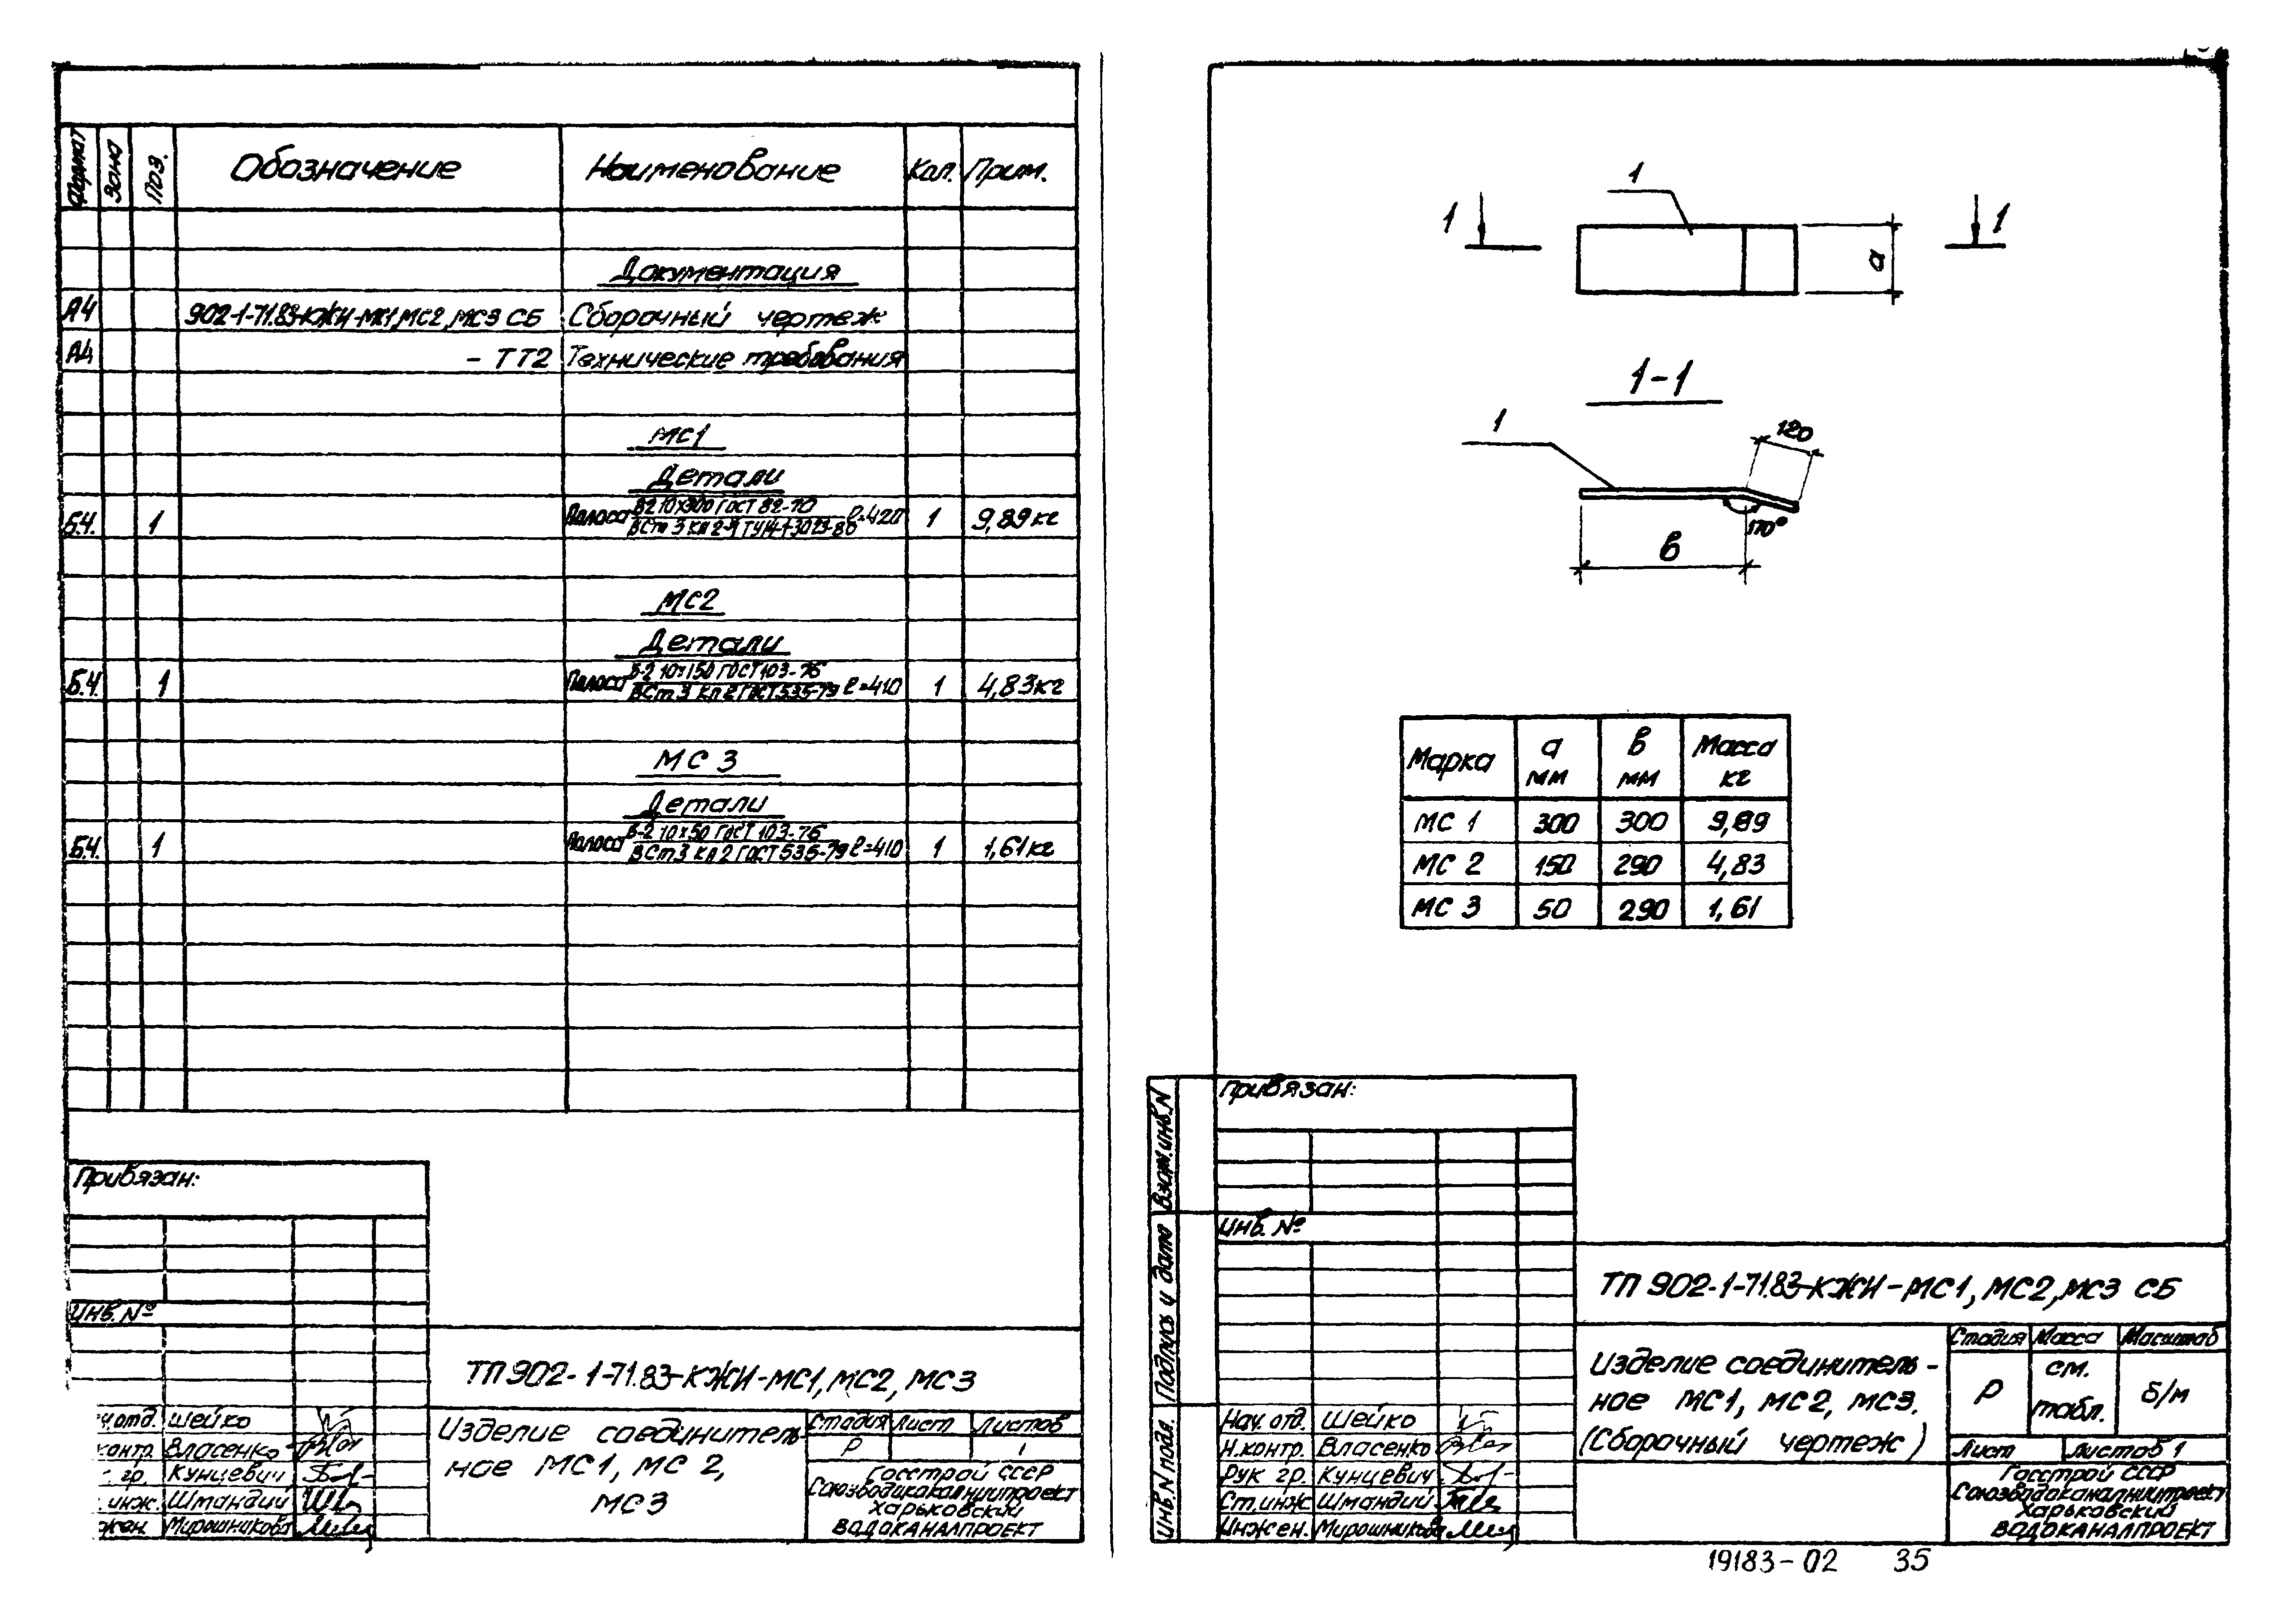 Формат Зона Поз. Обозначение Наименование Кол. Прим.
Документация
А4 902-1-71.83-КЖИ-МС1,МС2,МС3 СБ Сборочный чертеж
А4 - ТТ2 Технические требования
МС1
Детали
Б.Ч. 1 Полоса В2 10х300 ГОСТ 82-70 ℓ=420 1 9,89кг
ВСт 3 КП 2-II ТУ14-1-3023-80
МС2
Детали
Б.Ч. 1 Полоса Б-2 10х150 ГОСТ 103-76 ℓ=410 1 4,83кг
ВСт 3 КП 2 ГОСТ 535-79
МС 3
Детали
Б.Ч. 1 Полоса Б-2 10х50 ГОСТ 103-76 ℓ=410 1 1,61кг
ВСт 3 КП 2 ГОСТ 535-79
Привязан:
Инв. №
ТП 902-1-71.83-КЖИ-МС1, МС2, МС3
ч.отд. Шейко
контр. Власенко
гр. Кунцевич
инж. Штандий
жен. Мирошникова
Изделие соединитель-
ное МС1, МС 2,
МС3
Стадия Лист Листов
Р 1
Госстрой СССР
Союзводоканалниипроект
Харьковский
ВОДОКАНАЛПРОЕКТ
1
1 1
а
1-1
1
120
170°
в
Марка а мм в мм Масса кг
МС 1 300 300 9,89
МС 2 150 290 4,83
МС 3 50 290 1,61
Привязан:
Инв. №
Взам.инв.N
Подпись и дата
Инв.N подл.
ТП 902-1-71.83-КЖИ-МС1, МС2, МС3 СБ
Нач. отд. Шейко
Н.контр. Власенко
Рук гр. Кунцевич
Ст.инж Штандий
Инжен. Мирошникова
Изделие соединитель-
ное МС1, МС2, МС3.
(Сборочный чертеж)
Стадия Масса Масштаб
Р см. табл. б/м
Лист Листов 1
Госстрой СССР
Союзводоканалниипроект
Харьковский
ВОДОКАНАЛПРОЕКТ
19183-02 35